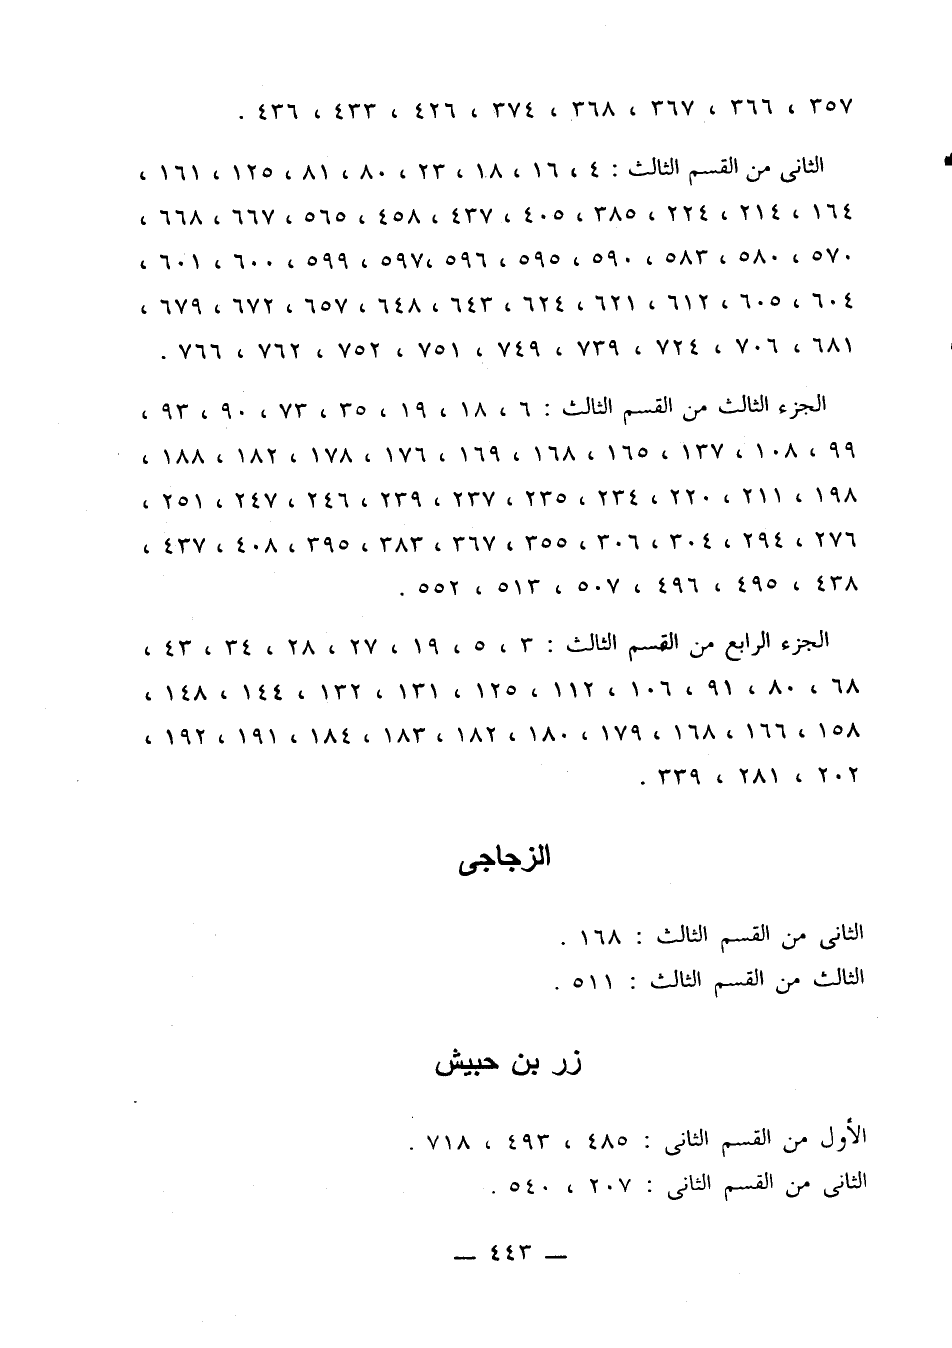 ٣٥٧ ، ٣٦٦ ، ٣٦٧ ، ٣٦٨ ، ٣٧٤ ، ٤٢٦ ، ٤٣٣ ، ٤٣٦ .
الثانى من القسم الثالث : ٤ ، ١٦ ، ١٨ ، ٢٣ ، ٨٠ ، ٨١ ، ١٢٥ ، ١٦١ ،
١٦٤ ، ٢١٤ ، ٢٢٤ ، ٣٨٥ ، ٤٠٥ ، ٤٣٧ ، ٤٥٨ ، ٥٦٥ ، ٦٦٧ ، ٦٦٨ ،
٥٧٠ ، ٥٨٠ ، ٥٨٣ ، ٥٩٠ ، ٥٩٥ ، ٥٩٦ ،٥٩٧ ، ٥٩٩ ، ٦٠٠ ، ٦٠١ ،
٦٠٤ ، ٦٠٥ ، ٦١٢ ، ٦٢١ ، ٦٢٤ ، ٦٤٣ ، ٦٤٨ ، ٦٥٧ ، ٦٧٢ ، ٦٧٩ ،
٦٨١ ، ٧٠٦ ، ٧٢٤ ، ٧٣٩ ، ٧٤٩ ، ٧٥١ ، ٧٥٢ ، ٧٦٢ ، ٧٦٦ .
الجزء الثالث من القسم الثالث : ٦ ، ١٨ ، ١٩ ، ٣٥ ، ٧٣ ، ٩٠ ، ٩٣ ،
٩٩ ، ١٠٨ ، ١٣٧ ، ١٦٥ ، ١٦٨ ، ١٦٩ ، ١٧٦ ، ١٧٨ ، ١٨٢ ، ١٨٨ ،
١٩٨ ، ٢١١ ، ٢٢٠ ، ٢٣٤ ، ٢٣٥ ، ٢٣٧ ، ٢٣٩ ، ٢٤٦ ، ٢٤٧ ، ٢٥١ ،
٢٧٦ ، ٢٩٤ ، ٣٠٤ ، ٣٠٦ ، ٣٥٥ ، ٣٦٧ ، ٣٨٣ ، ٣٩٥ ، ٤٠٨ ، ٤٣٧ ،
٤٣٨ ، ٤٩٥ ، ٤٩٦ ، ٥٠٧ ، ٥١٣ ، ٥٥٢ .
الجزء الرابع من القسم الثالث : ٣ ، ٥ ، ١٩ ، ٢٧ ، ٢٨ ، ٣٤ ، ٤٣ ،
٦٨ ، ٨٠ ، ٩١ ، ١٠٦ ، ١١٢ ، ١٢٥ ، ١٣١ ، ١٣٢ ، ١٤٤ ، ١٤٨ ،
١٥٨ ، ١٦٦ ، ١٦٨ ، ١٧٩ ، ١٨٠ ، ١٨٢ ، ١٨٣ ، ١٨٤ ، ١٩١ ، ١٩٢ ،
٢٠٢ ، ٢٨١ ، ٣٣٩ .
الزجاجى
الثانى من القسم الثالث : ١٦٨ .
الثالث من القسم الثالث : ٥١١ .
زر بن حبيش
الأول من القسم الثانى : ٤٨٥ ، ٤٩٣ ، ٧١٨ .
الثانى من القسم الثانى : ٢٠٧ ، ٥٤٠ .
— ٤٤٣ —